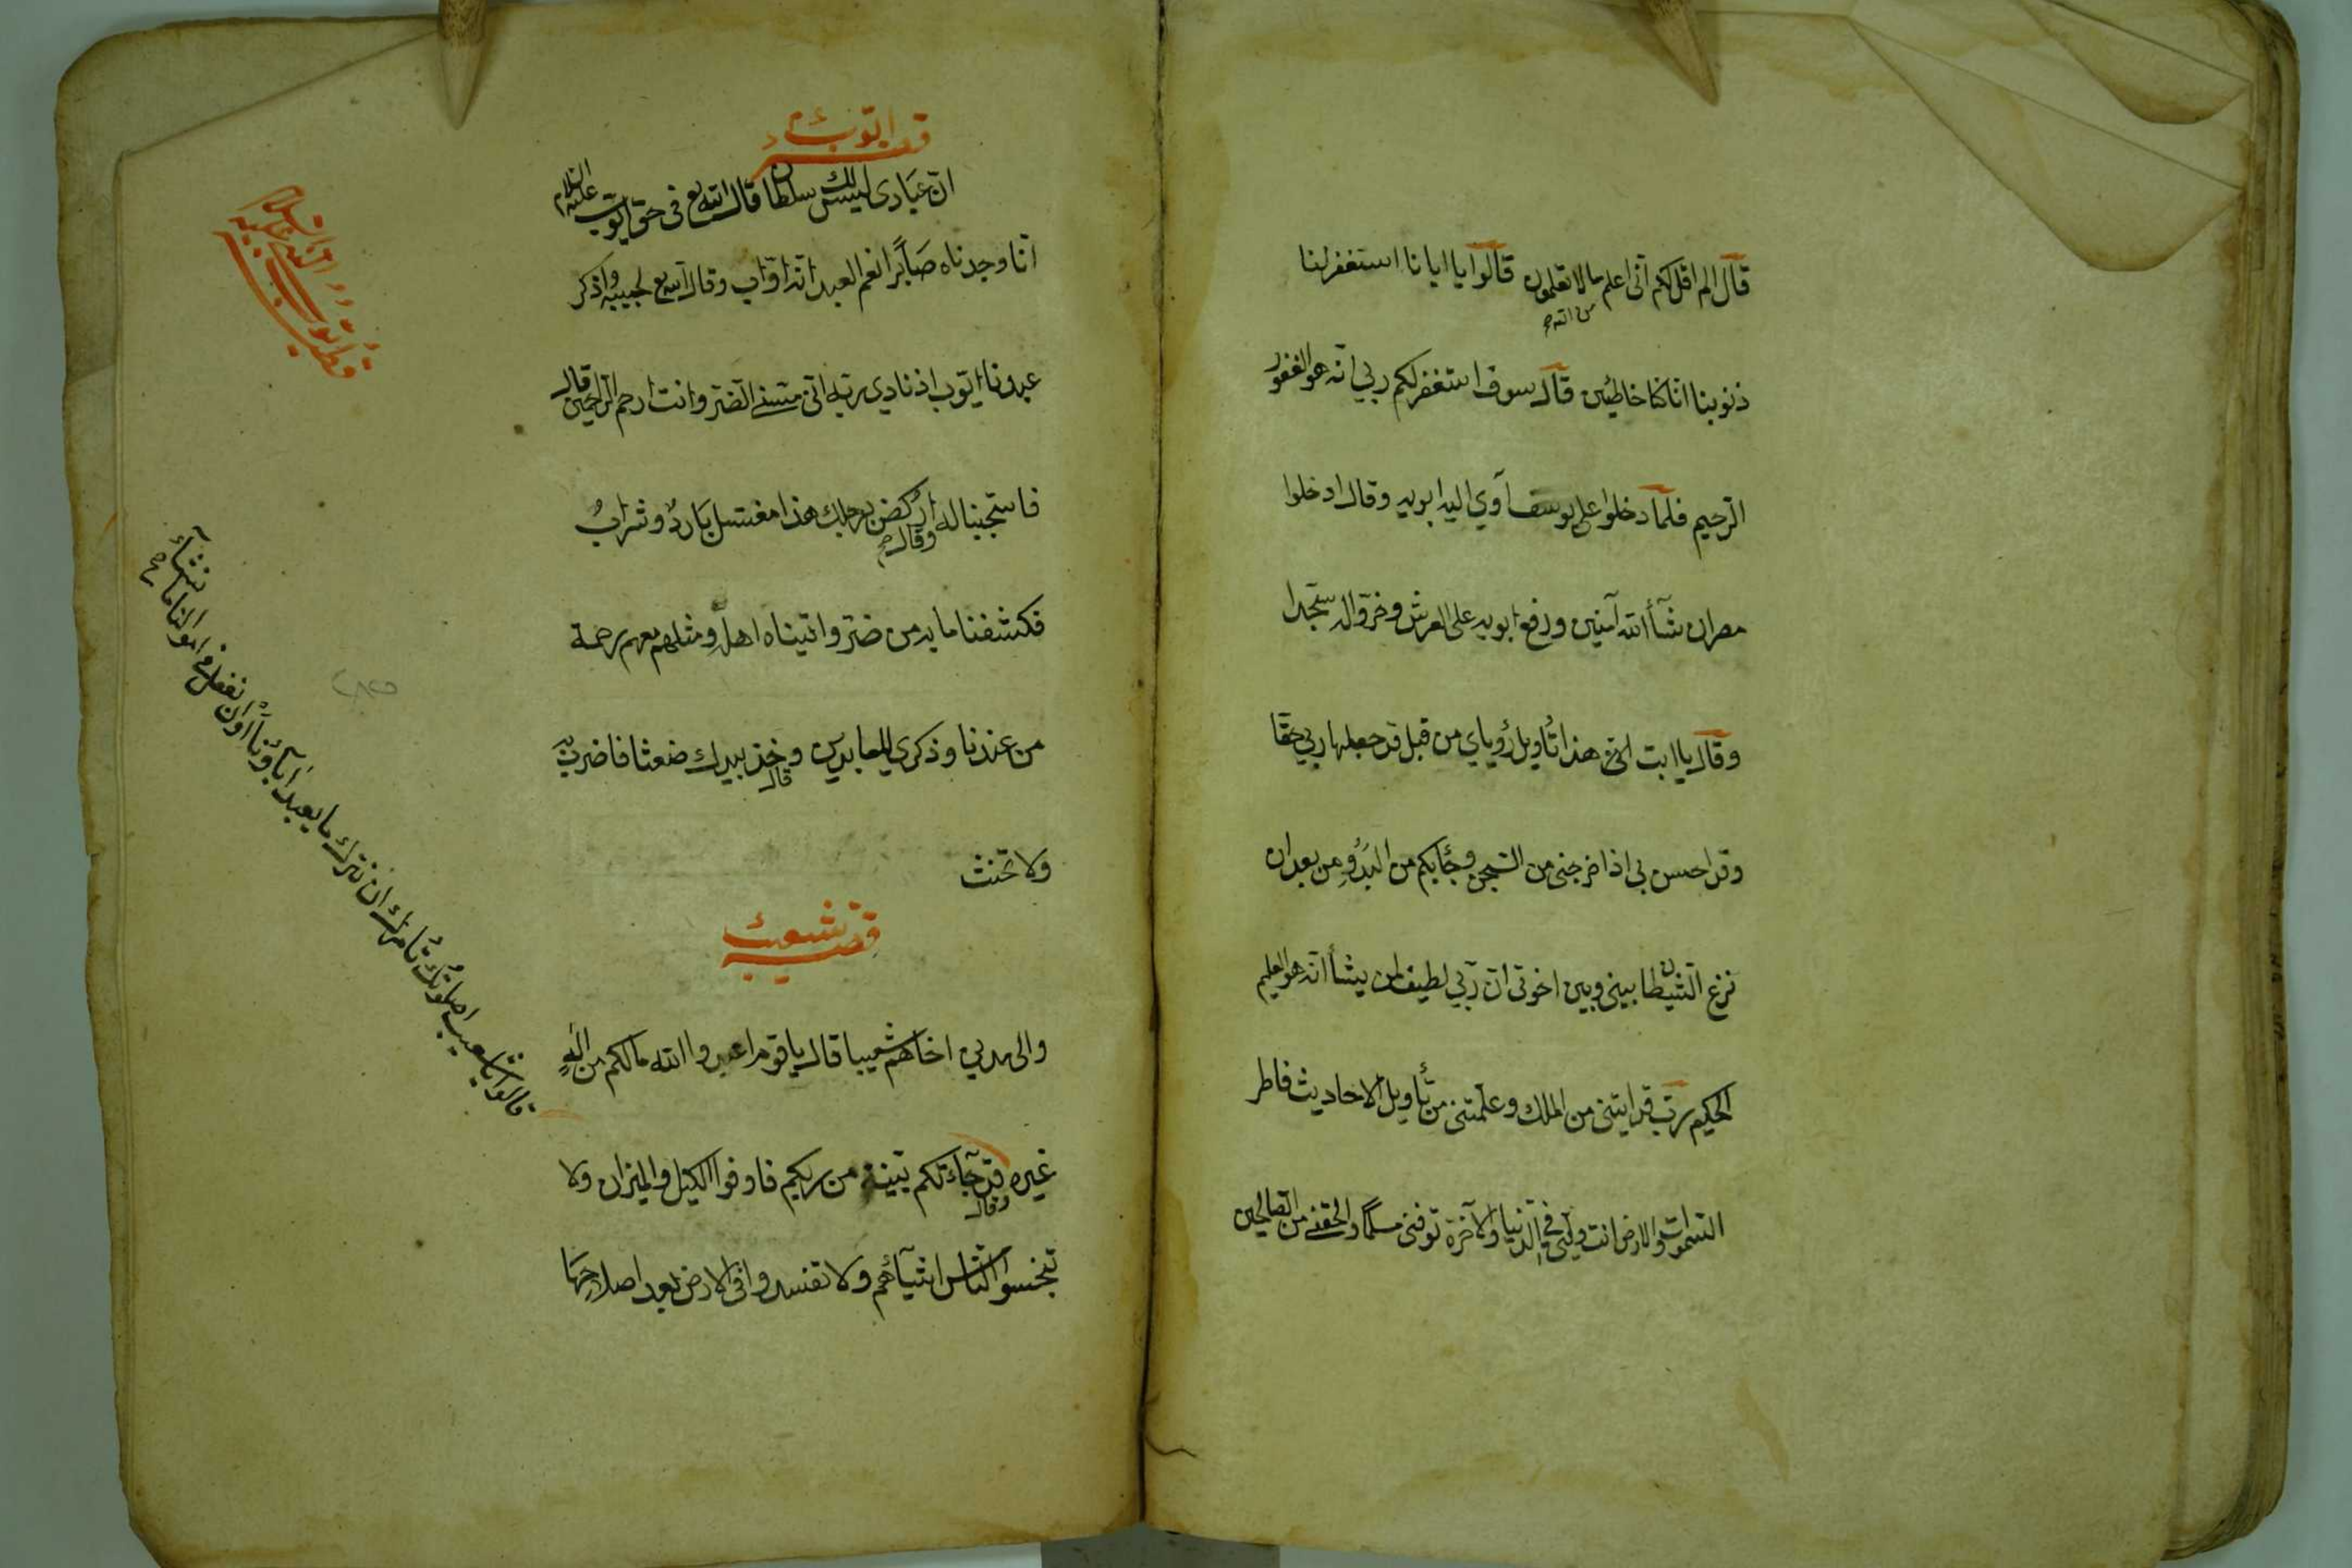 قال الم اقل لكم انى اعلم ما لا تعلمون قالوا يا ابانا استغفر لنا
من الله
ذنوبنا انا كنا خاطئين قال سوف استغفر لكم ربي انه هو الغفور
الرحيم فلما دخلوا على يوسف آوي اليه ابويه وقال ادخلوا
مصر ان شآأ الله آمنين ورفع ابويه على العرش وخروا له سجدا
وقال يا ابت هذا تأويل رؤياي من قبل قد جعلها ربي حقا
وقد احسن بي اذ اخرجني من السجن وجأبكم من البدو من بعد ان
نزغ الشيطان بيني وبين اخوتى ان ربي لطيف لمن يشأ انه هو العليم
الحكيم رب قد ايتنى من الملك وعلمتنى من تأويل الاحاديث فاطر
السموات والارض انت وليى في الدنيا والآخرة توفنى مسلما والحقني من الصالحين
قصه ايوب ءم
ان عبادى ليس لك سلطان قال الله تع فى حق ايوب عليه السلام
انا وجدناه صابرا نعم العبد انه اواب وقال الله تع لحبيبه واذكر
عبدنا ايوب اذ نادى ربه انى مسني الضر وانت ارحم الراحمين قال
فاستجبنا له اركض برجلك هذا مغتسل بارد وشراب
وقال
فكشفنا ما به من ضر واتيناه اهله ومثلهم معهم رحمة
من عندنا وذكرى للعابدين وخذ بيدك ضغثا فاضرب به
قال
ولا تحنث
قصه شعيب
والى مدين اخاهم شعيبا قال يا قوم اعبدوا الله ما لكم من اله
غيره قد جآءتكم بينة من ربكم فاوفوا الكيل والميزان ولا
وقال
تبخسوا الناس اشيآءهم ولا تفسدوا فى الارض بعد اصلاحها
قالوا يا شعيب اصلوتك تأمرك ان نترك ما يعبد آبآؤنا او ان نفعل في اموالنا ما نشآء